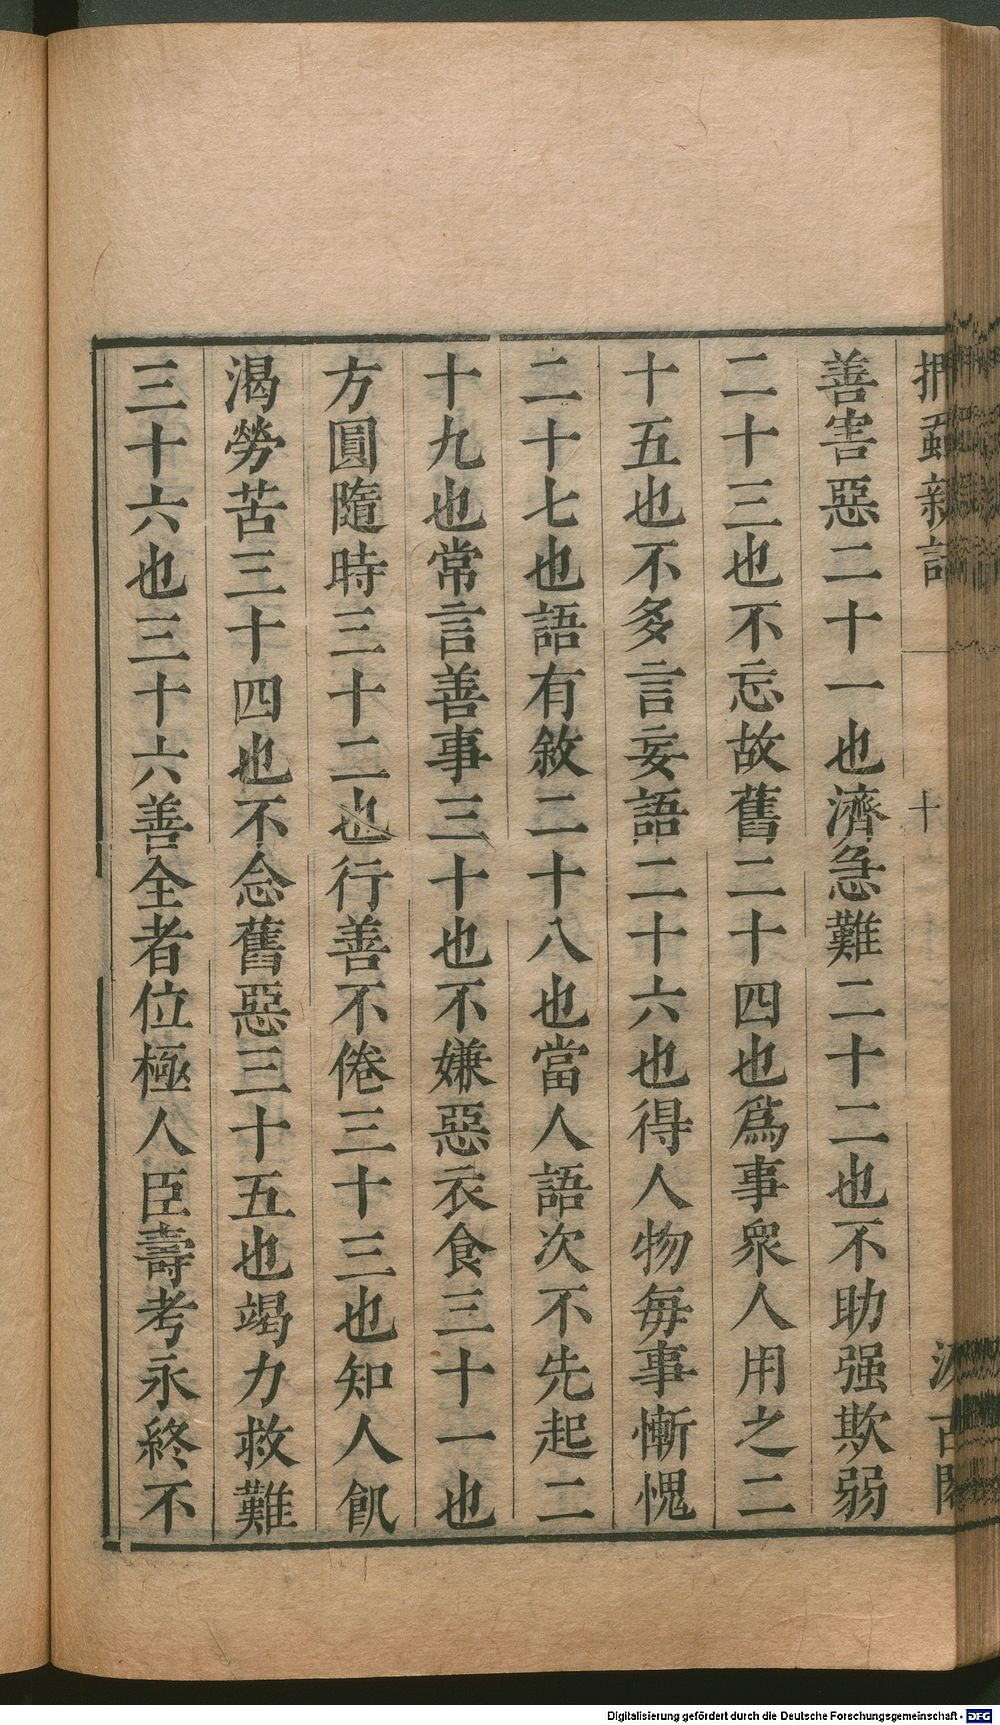 捫蝨新話
十
汲古閣
善害惡二十一也濟急難二十二也不助强欺弱
二十三也不忘故舊二十四也爲事衆人用之二
十五也不多言妄語二十六也得人物每事慚愧
二十七也語有敘二十八也當人語次不先起二
十九也常言善事三十也不嫌惡衣食三十一也
方圓隨時三十二也行善不倦三十三也知人飢
渴勞苦三十四也不念舊惡三十五也竭力救難
三十六也三十六善全者位極人臣壽考永終不
Digitalisierung gefördert durch die Deutsche Forschungsgemeinschaft - DFG